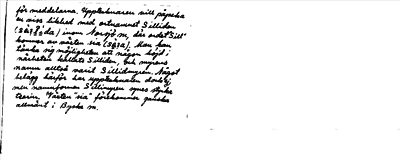 för meddelarna. Upptecknaren vill påpeka
en viss likhet med ortnamnet Silliden
da) inom Norsjö sn, där ordet "Sill"
kommer av växten sia Man kan
tänka sig möjligheten att någon höjd i
närheten kallats Silliden, och myrens
namn alltså varit Sillidmyren. Något
belägg härför har upptecknaren dock ej,
men namnformen Sillmyren synes styrka
teorin. Växten "sia" förekommer ganska
allmänt i Byske sn.